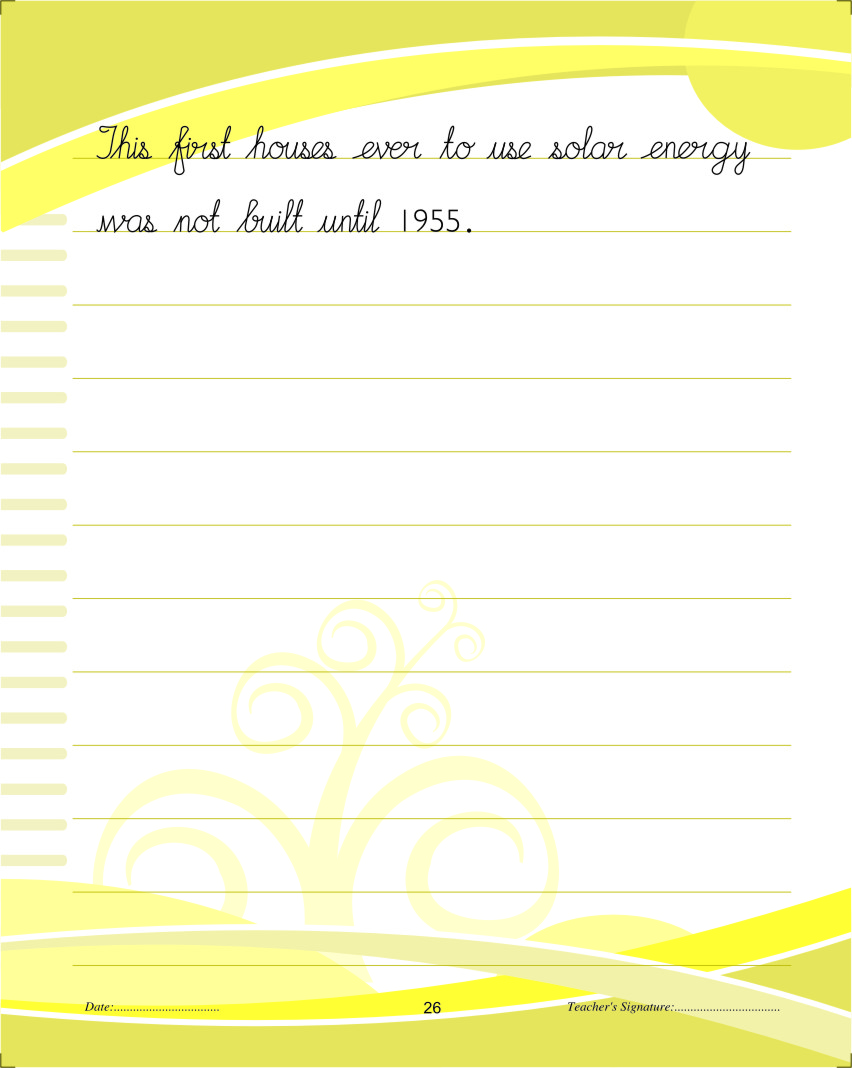 This first houses ever to use solar energy
was not built until 1955.
Date:.................................
26
Teacher's Signature:.................................